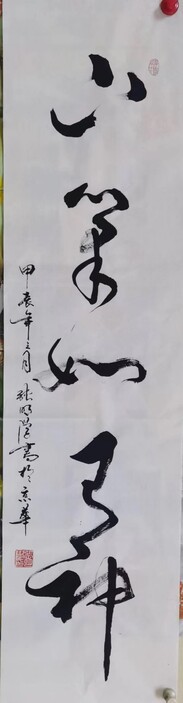 下笔如有神
甲辰年三月 张明学书于京华